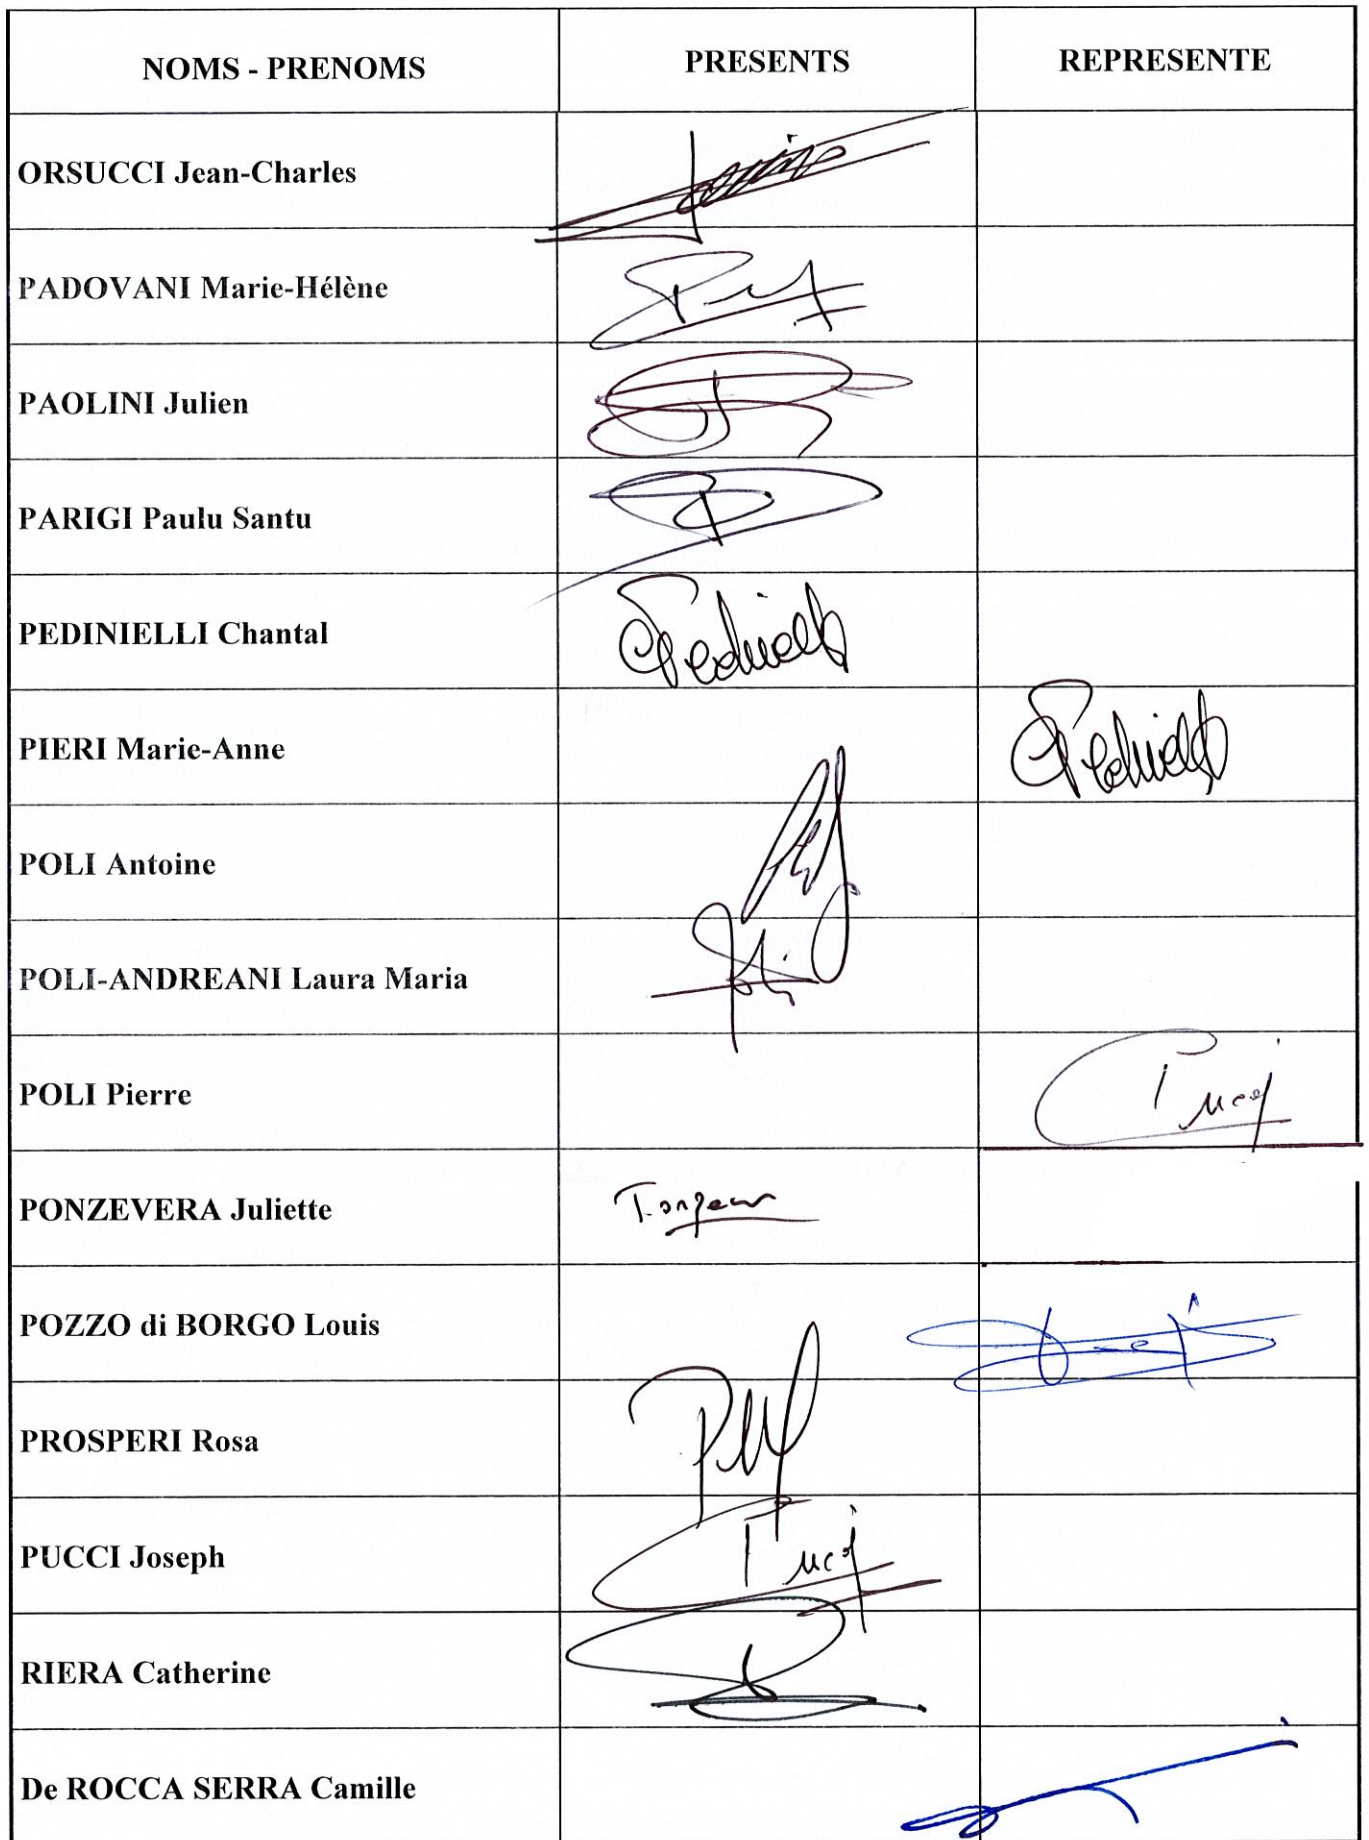 NOMS - PRENOMS PRESENTS REPRESENTE
ORSUCCI Jean-Charles
PADOVANI Marie-Hélène
PAOLINI Julien
PARIGI Paulu Santu
PEDINIELLI Chantal
PIERI Marie-Anne
POLI Antoine
POLI-ANDREANI Laura Maria
POLI Pierre
PONZEVERA Juliette
POZZO di BORGO Louis
PROSPERI Rosa
PUCCI Joseph
RIERA Catherine
De ROCCA SERRA Camille